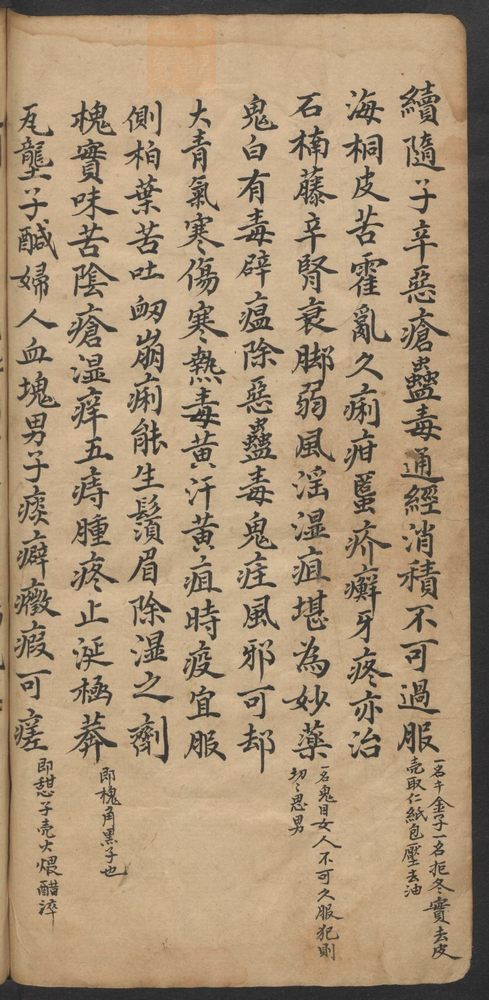 續隨子辛惡瘡蠱毒通經消積不可過服
一名千金子一名拒冬實去皮
壳取仁紙包壓去油
海桐皮苦霍亂久痢疳䘌疥癬牙疼亦治
石楠藤辛腎衰脚弱風淫湿疽堪為妙藥
一名鬼目女人不可久服犯則
切切思男
鬼臼有毒辟瘟除惡蠱毒鬼疰風邪可却
大青氣寒傷寒熱毒黃汗黃疸時疫宜服
側柏葉苦吐衂崩痢能生鬚眉除湿之劑
槐實味苦陰瘡湿痒五痔腫疼止涎極莽
即槐角黑子也
瓦壟子鹹婦人血塊男子痰癖癥瘕可瘥
即甜子壳火煨醋淬